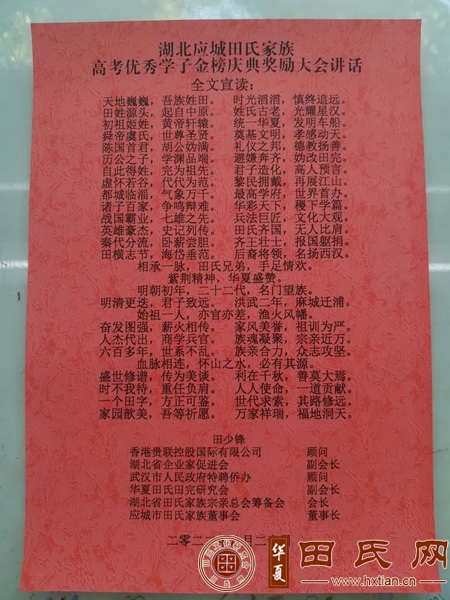 湖北应城田氏家族
高考优秀学子金榜庆典奖励大会讲话
全文宣读：
天地巍巍，吾族姓田。 时光滔滔，慎终追远。
田姓源头，起自中原。 姬氏古老，光耀星汉。
初祖姬姓，黄帝轩辕。 统一华夏，发明车船。
舜帝虞氏，世尊圣贤。 奠基文明，孝感动天。
陈国首君，胡公妫满。 礼仪之邦，德教扬善。
历公之子，学渊品端。 避嫌奔齐，妫改田完。
自此得姓，完为祖先。 君子造化，高人预言。
虚怀若谷，代代为范。 黎民拥戴，再展江山。
都城临淄，气象万千。 最高学府，世界首办。
诸子百家，争鸣辩难。 华彩天下，稷下学篇。
战国霸业，七雄之先。 兵法巨匠，文化大观。
英雄豪杰，史记列传。 田氏齐国，无人比肩。
秦代分流，卧薪尝胆。 齐王壮士，报国躯捐。
田横志节，海岱垂范。 后裔将领，名扬西汉。
相承一脉，田氏兄弟，手足情欢。
紫荆精神，华夏盛赞。
明朝初年，二十二代，名门望族。
明清更迭，君子致远。 洪武二年，麻城迁浦。
始祖一人，亦官亦差，渔火风幡。
奋发图强，薪火相传。 家风美誉，祖训为严。
人杰代出，商学兵官。 族魂凝聚，宗亲近万。
六百多年，世系不乱。 族亲合力，众志攻坚。
血脉相连，怀山之水，必有其源。
盛世修谱，传为美谈。 利在千秋，善莫大焉。
时不我待，重任负肩。 人人使命，一道贡献。
一个田字，方正可鉴。 世代求索，其路修远。
家园歆美，吾等祈愿。 万家祥瑞，福地洞天。
田少锋
香港贵联控股国际有限公司 顾问
湖北省企业家促进会 副会长
武汉市人民政府特聘侨办 顾问
华夏田氏田完研究会 副会长
湖北省田氏家族宗亲总会筹备会 会长
应城市田氏家族董事会 董事长
二零二 月二
华夏田氏网
www.hxtian.cn